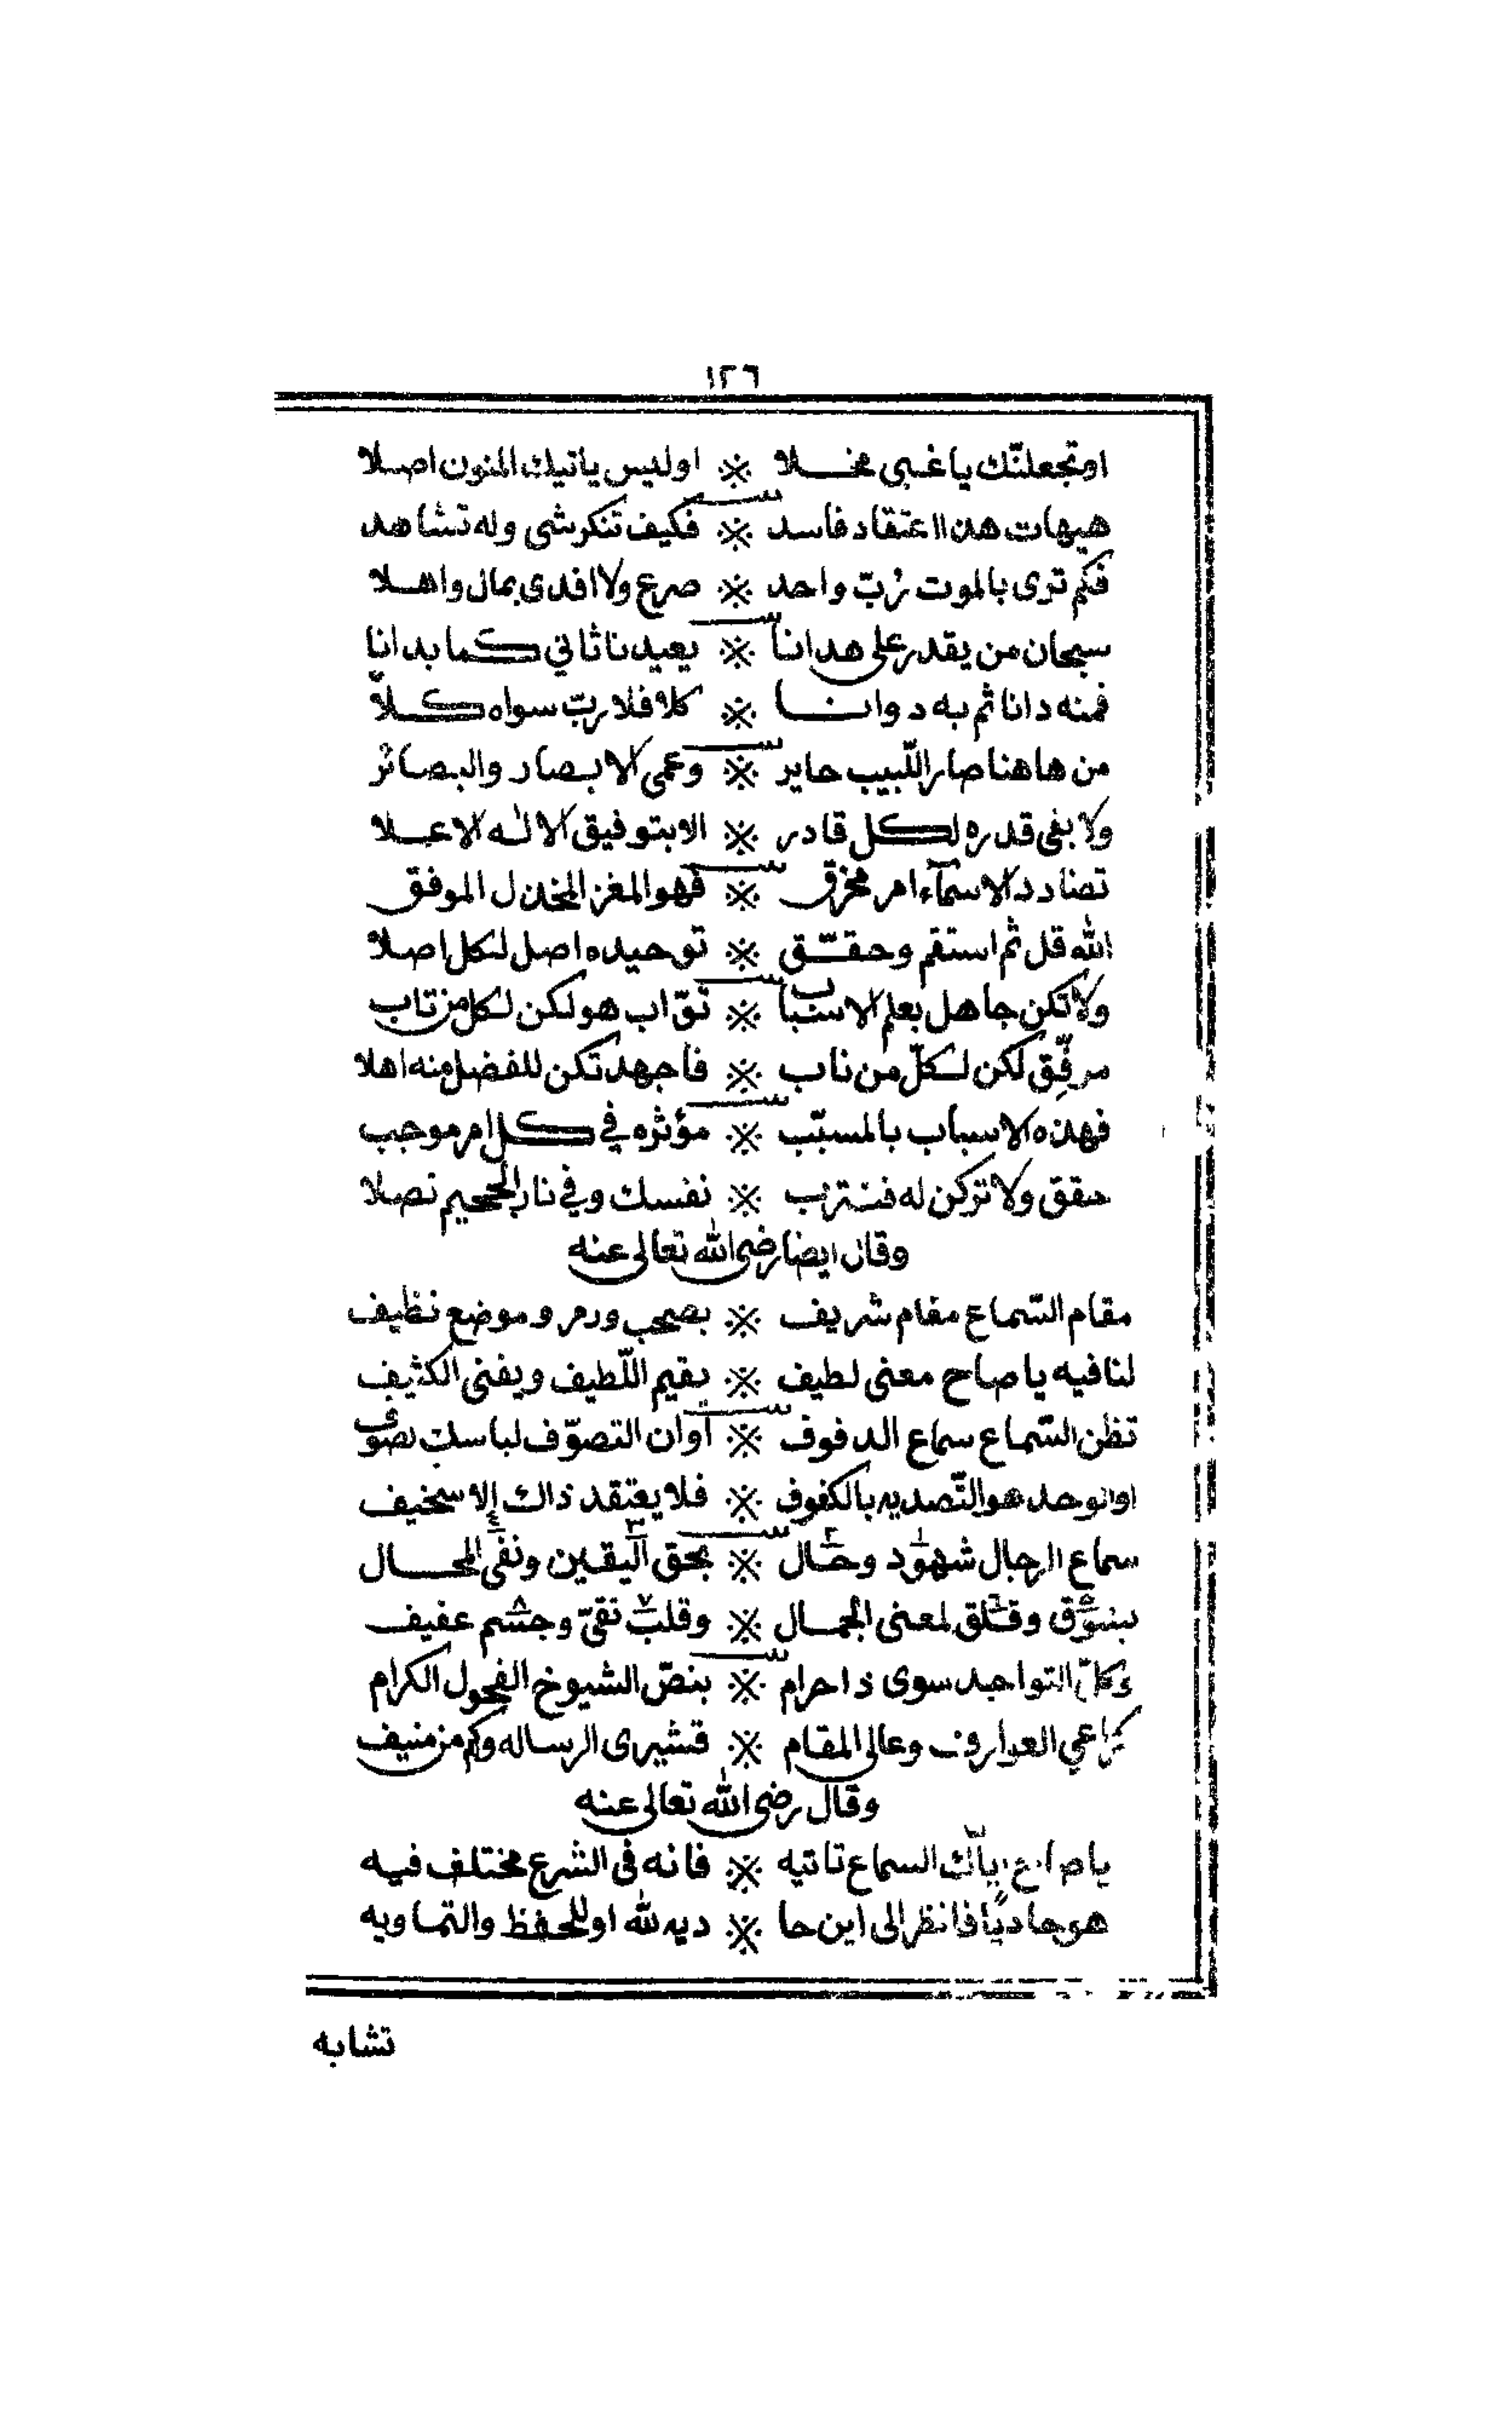 ١٢٦
اوتجعلنّك ياغبى مخلا ※ اوليس ياتيك المنون اصلا
هيهات هذا اعتقاد فاسد ※ فكيف تنكر شى وله تشاهد
فكم ترى بالموت ربّ واحد ※ صرع ولا افدى بمال واهلا
سبحان من يقدر على هدانا ※ يعيدنا ثاني كما بدانا
فمنه دانا ثم به دوانا ※ كلا فلا ربّ سواه كلاّ
من هاهنا صار اللّبيب حاير ※ وعمى الابصار والبصائر
ولا بغى قدره لكل قادر ※ الا بتوفيق الاله الاعلا
تضادد الاسمآء امر مخرق ※ فهو المغز المخذل الموفق
الله قل ثم استقم وحقّق ※ توحيده اصل لكل اصلا
ولا تكن جاهل بعلم الاسباب ※ توّاب هو لكن لكل من تاب
مرفّق لكن لكلّ من ناب ※ فاجهد تكن للفضل منه اهلا
فهذه الاسباب بالمسبّب ※ مؤثره في كل امر موجب
حقق ولا تركن له فتترب ※ نفسك وفي نار الجحيم تصلا
وقال ايضا رضى الله تعالى عنه
مقام السّماع مقام شريف ※ بصحب ورمر وموضع نظيف
لنا فيه يا صاح معنى لطيف ※ يقيم اللّطيف ويفنى الكثيف
تظن السّماع سماع الدفوف ※ اوان التصوّف لباسك بصوف
اوالوجد هو التّصديه بالكفوف ※ فلا يعتقد ذاك إلا سخيف
سماع الرجال شهود وحال ※ بحق اليقين ونفى المحال
بشوق وقلق لمعنى الجمال ※ وقلب نقىّ وجسم عفيف
وكلّ التواجد سوى ذا حرام ※ بنصّ الشيوخ الفحول الكرام
كراعي العوارف وعالى المقام ※ قشيرى الرساله وكم من منيف
وقال رضى الله تعالى عنه
يا صاح ايّاك السماع تاتيه ※ فانه فى الشرع مختلف فيه
هو حاديًا فانظر الى اين حا ※ ديه لله او للحفظ والتماويه
تشابه